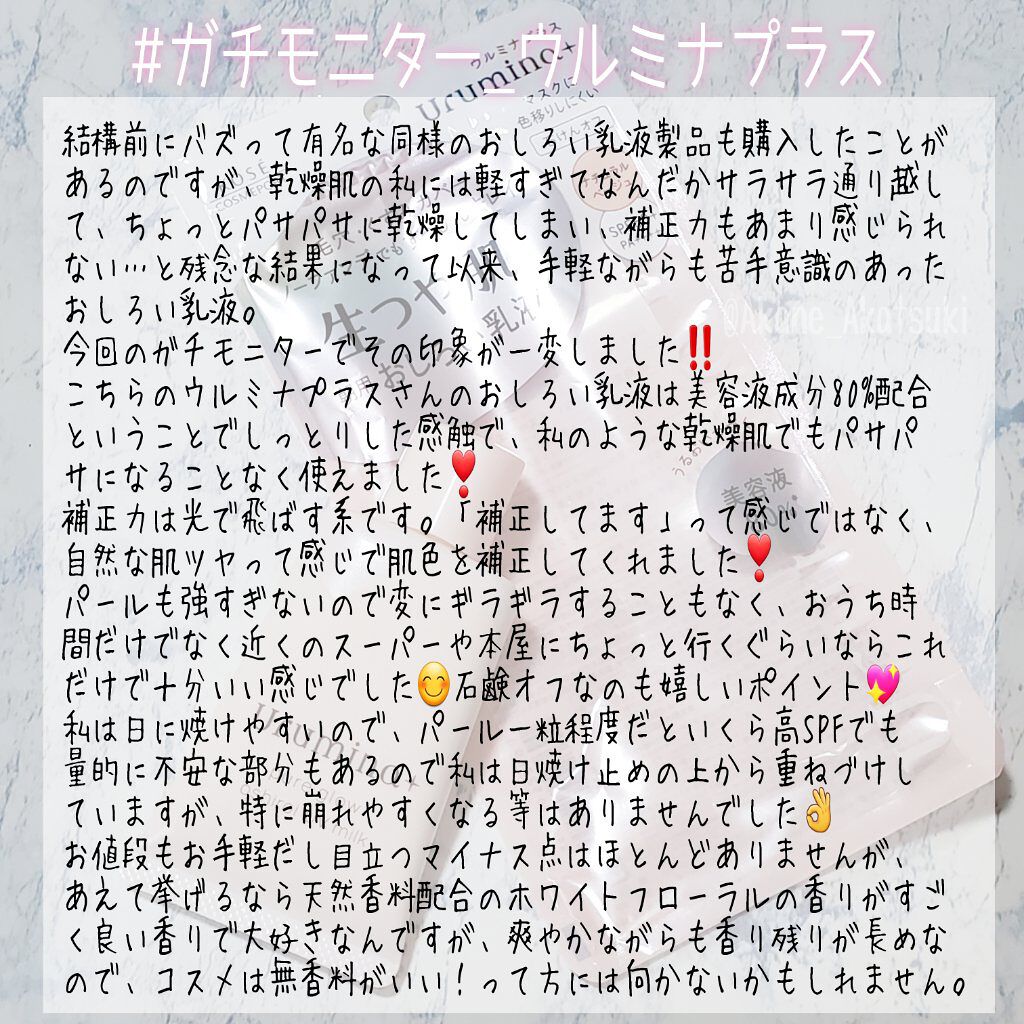 #ガチモニター_ウルミナプラス
結構前にバズって有名な同様のおしろい乳液製品も購入したことが
あるのですが、乾燥肌の私には軽すぎてなんだかサラサラ通り越し
て、ちょっとパサパサに乾燥してしまい、補正力もあまり感じられ
ない…と残念な結果になって以来、手軽ながらも苦手意識のあった
おしろい乳液。
今回のガチモニターでその印象が一変しました‼️
こちらのウルミナプラスさんのおしろい乳液は美容液成分80%配合
ということでしっとりした感触で、私のような乾燥肌でもパサパ
サになることなく使えました❣️
補正力は光で飛ばす系です。「補正してます」って感じではなく、
自然な肌ツヤって感じで肌色を補正してくれました❣️
パールも強すぎないので変にギラギラすることもなく、おうち時
間だけでなく近くのスーパーや本屋にちょっと行くぐらいならこれ
だけで十分いい感じでした😊石鹸オフなのも嬉しいポイント💖
私は日に焼けやすいので、パール一粒程度だといくら高SPFでも
量的に不安な部分もあるので私は日焼け止めの上から重ねづけし
ていますが、特に崩れやすくなる等はありませんでした👌
お値段もお手軽だし目立つマイナス点はほとんどありませんが、
あえて挙げるなら天然香料配合のホワイトフローラルの香りがすご
く良い香りで大好きなんですが、爽やかながらも香り残りが長めな
ので、コスメは無香料がいい！って方には向かないかもしれません。
@Akane_Akatsuki
ウルミナプラス
Urumina+
マスクに
色移りしにくい
生つや肌
美容液
Urumina+